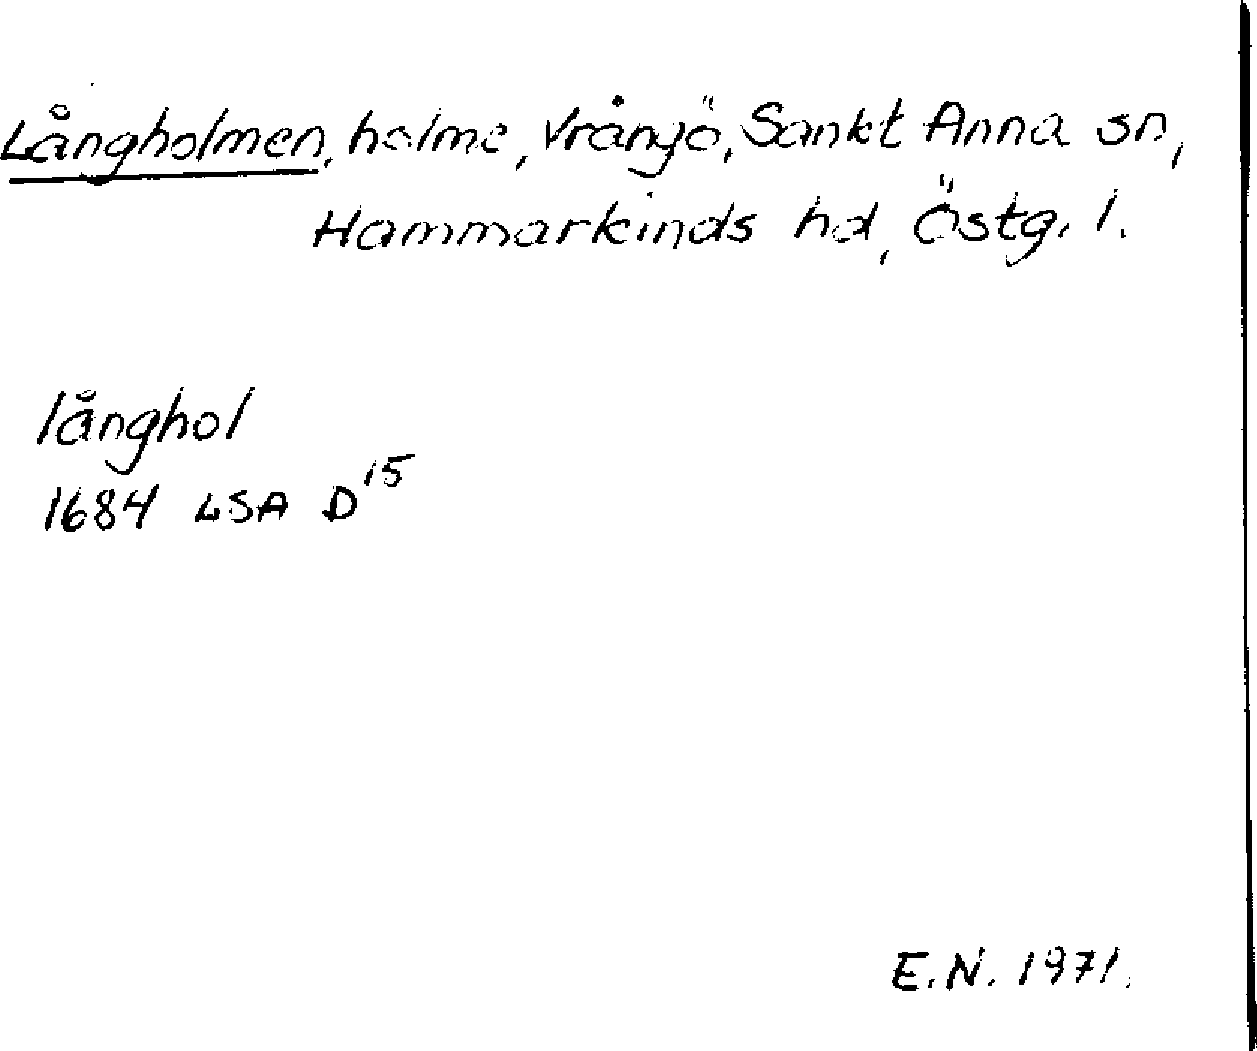 Långholmen, holme, Vrångö, Sankt Anna sn,
Hammarkinds hd, Östg. l.
långhol
1684 LSA D15
E.N. 1971.